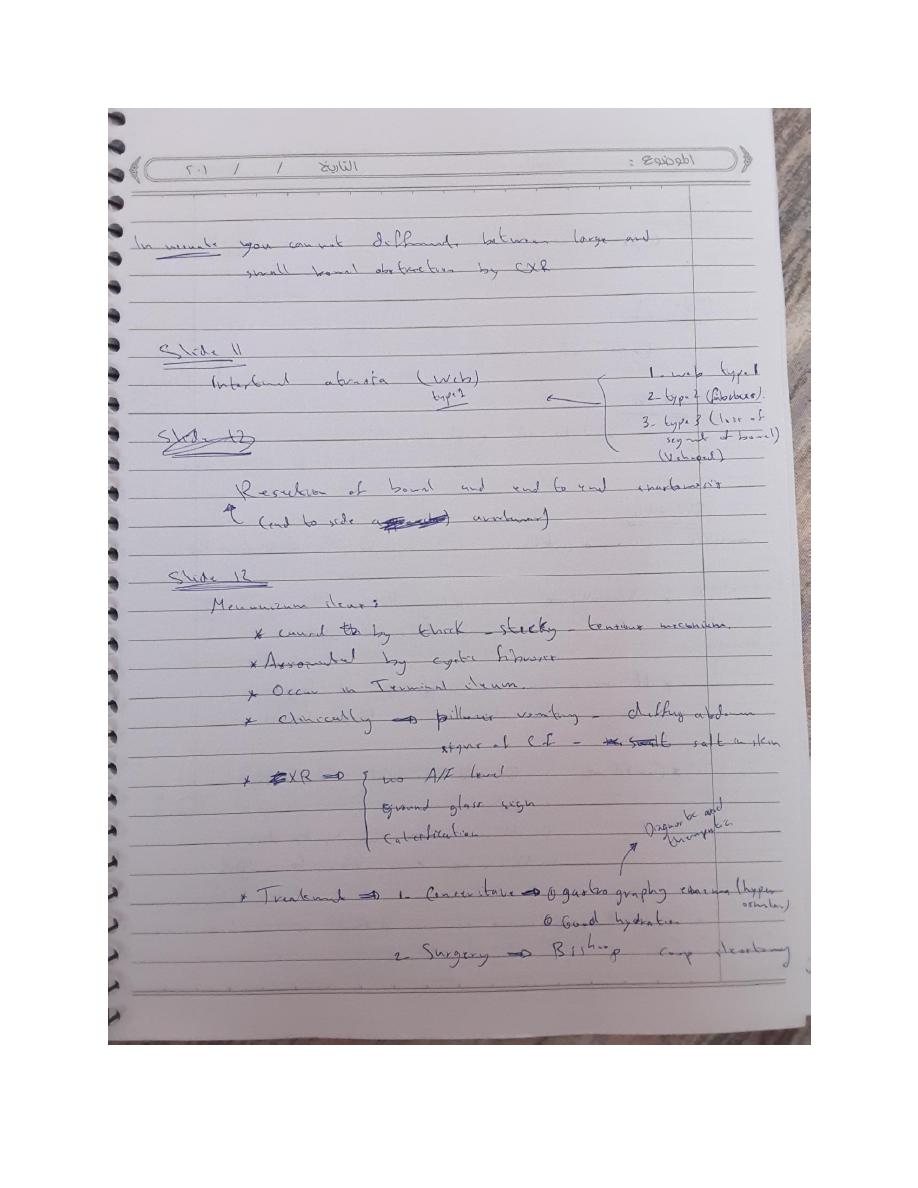 الموضوع : التاريخ / / ٢٠١
In neonate you cannot differentiate between large and
small bowel obstruction by CXR
Slide 11
Intestinal atresia (Web)
type 1
1- web type 1
2- type 2 (fibrous).
3- type 3 (loss of
segment of bowel)
(V shaped)
Slide 12
Resection of bowel and end to end anastomosis
(end to side
Slide 12
Meconium ileus:
* caused by thick - sticky - meconium.
* by cystic fibrosis
* Occur in Terminal ileum.
* Clinically ⇒ vomiting -
signs of CF - salt in skin
* XR ⇒ no A/F level
ground glass sign
Calcification
Diagnostic and
therapeutic
* Treatment ⇒ 1- ⇒ ① gastrography (hyper
② Good hydration
2- Surgery ⇒ Bishop